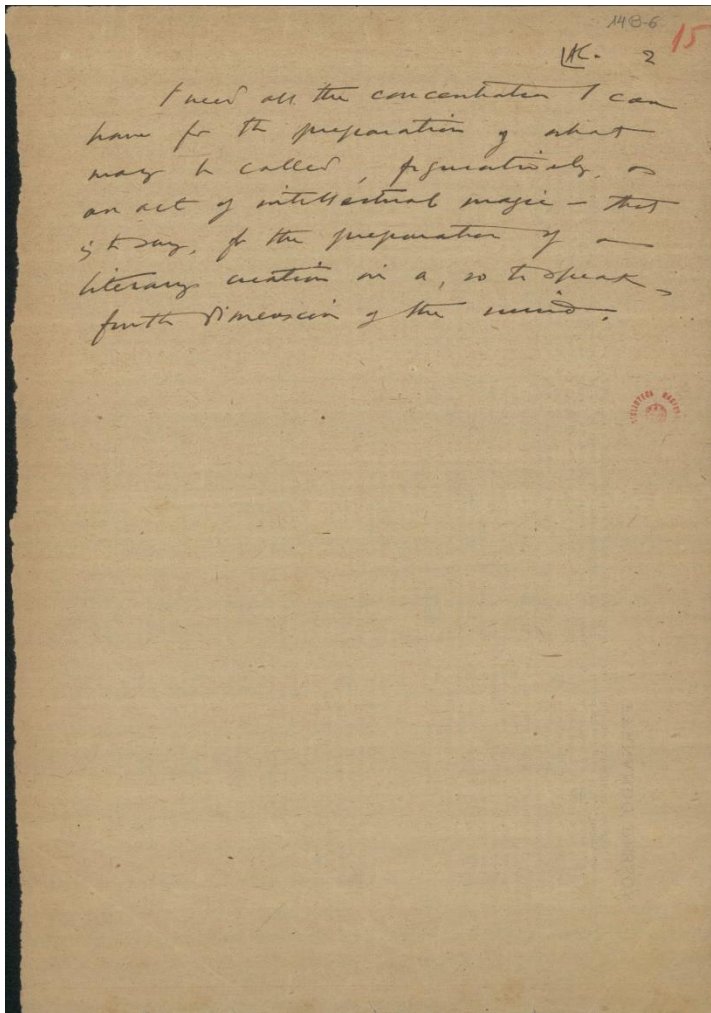 14B-6
15
2
I need all the concentration I can
have for the preparation of what
may be called, figuratively, as
an act of intellectual magic – that
is to say, for the preparation of a
literary creation in a, so to speak,
fourth dimension of the mind.